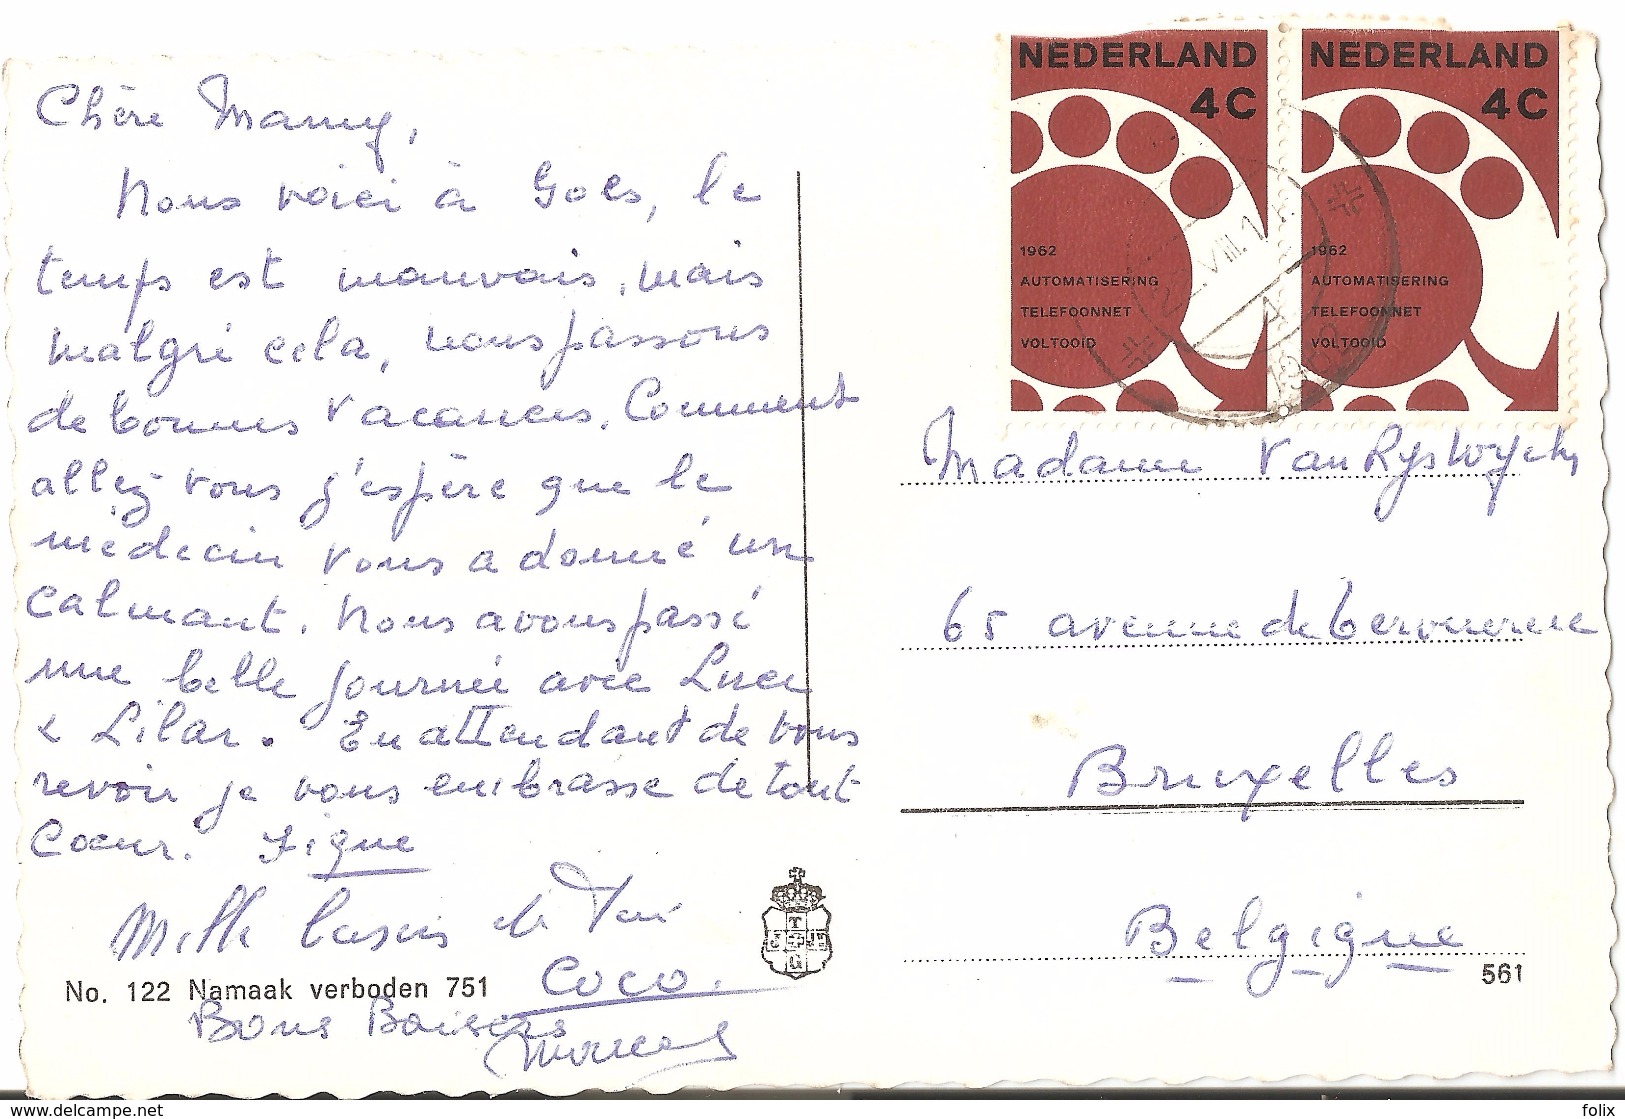 Chère Mamy,
Nous voici à Goes, le
temps est mauvais, mais
malgré cela, nous passons
de bonnes vacances. Comment
allez-vous j'espère que le
médecin vous a donné un
calmant. Nous avons passé
une belle journée avec Luce
& Lilar. En attendant de vous
revoir je vous embrasse de tout
Coeur.
Mille baisers de
Coco.
Bons Baisers
Marcel
No. 122 Namaak verboden 751
T
J F
G
NEDERLAND
4C
1962
AUTOMATISERING
TELEFOONNET
VOLTOOID
NEDERLAND
4C
1962
AUTOMATISERING
TELEFOONNET
VOLTOOID
VIII.1
Madame Van Ryswyck
65 avenue de Cervueren
Bruxelles
Belgique
561
www.delcampe.net
folix